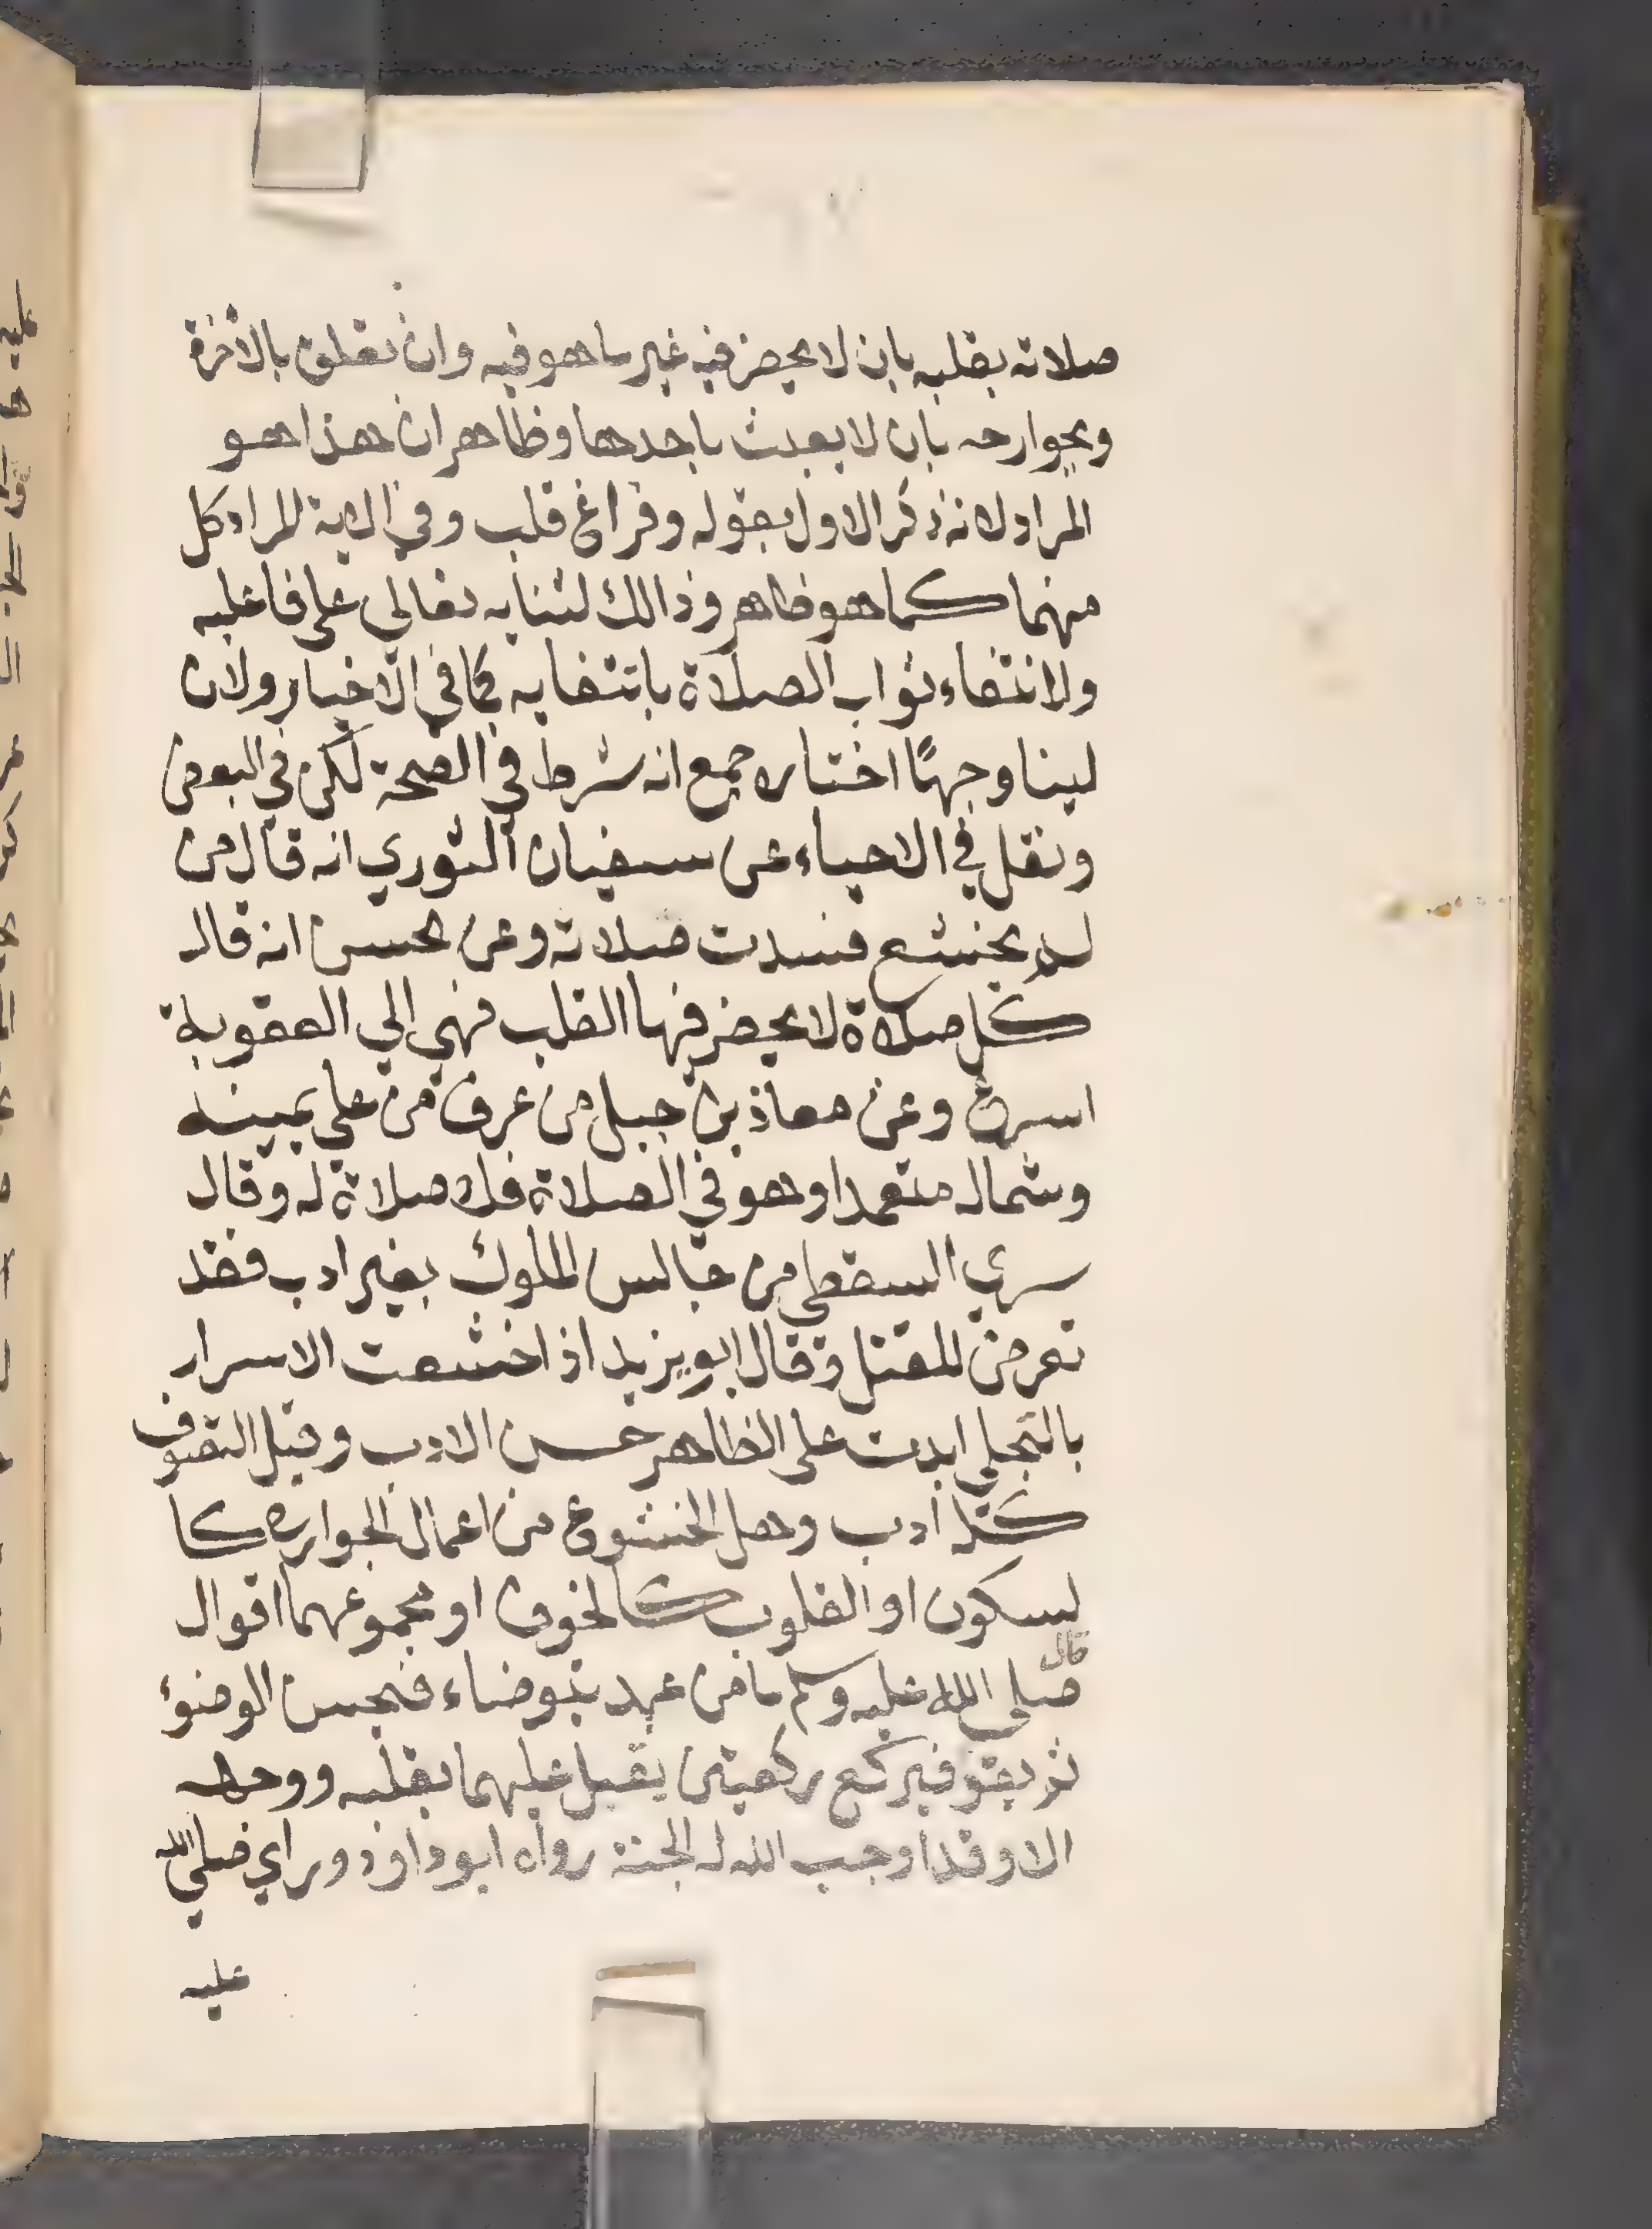 صلاته بقلبه بان لا يحضر فيه غير ما هو فيه وان تعلق بالاخرة
وبجوارحه بان لا يعبث باحدها وظاهر ان هذا هو
المراد لانه ذكر الاول بقوله وفراغ قلب وفي الاية المراد كل
منهما كما هو ظاهر وذالك لثنايه تعالي علي فاعليه
ولانتفاء ثواب الصلاة بانتفايه كما في الاخبار ولان
لينا وجهًا اختاره جمع انه شرط في الصحة لكن في البعض
ونقل في الاحياء عن سفيان الثوري انه قال من
لم يخشع فسدت صلاته وعن لحسن انه قال
كل صلاة لا يحضر فيها القلب فهي الي العقوبة
اسرع وعن معاذ بن جبل من عرف من علي يمينه
وشماله متعمدا وهو في الصلاة فلا صلاة له وقال
سري السقطي من جالس الملوك بغير ادب فقد
تعرض للقتل وقال ابو يزيد اذا خشعت الاسرار
بالتجلي ابدت علي الظاهر حسن الادب وقيل التصوف
كله ادب وهل الخشوع من اعمال الجوارح كا
لسكون او القلوب كالخوف او مجموعهما اقوال
قال
صلي الله عليه وسلم ما من عبد يتوضاء فيحسن الوضوء
ثم يقوم فيركع ركعتين يقبل عليهما بقلبه ووجهه
الا وقد اوجب الله له الجنة رواه ابو داود وراي صلي الله
عليه